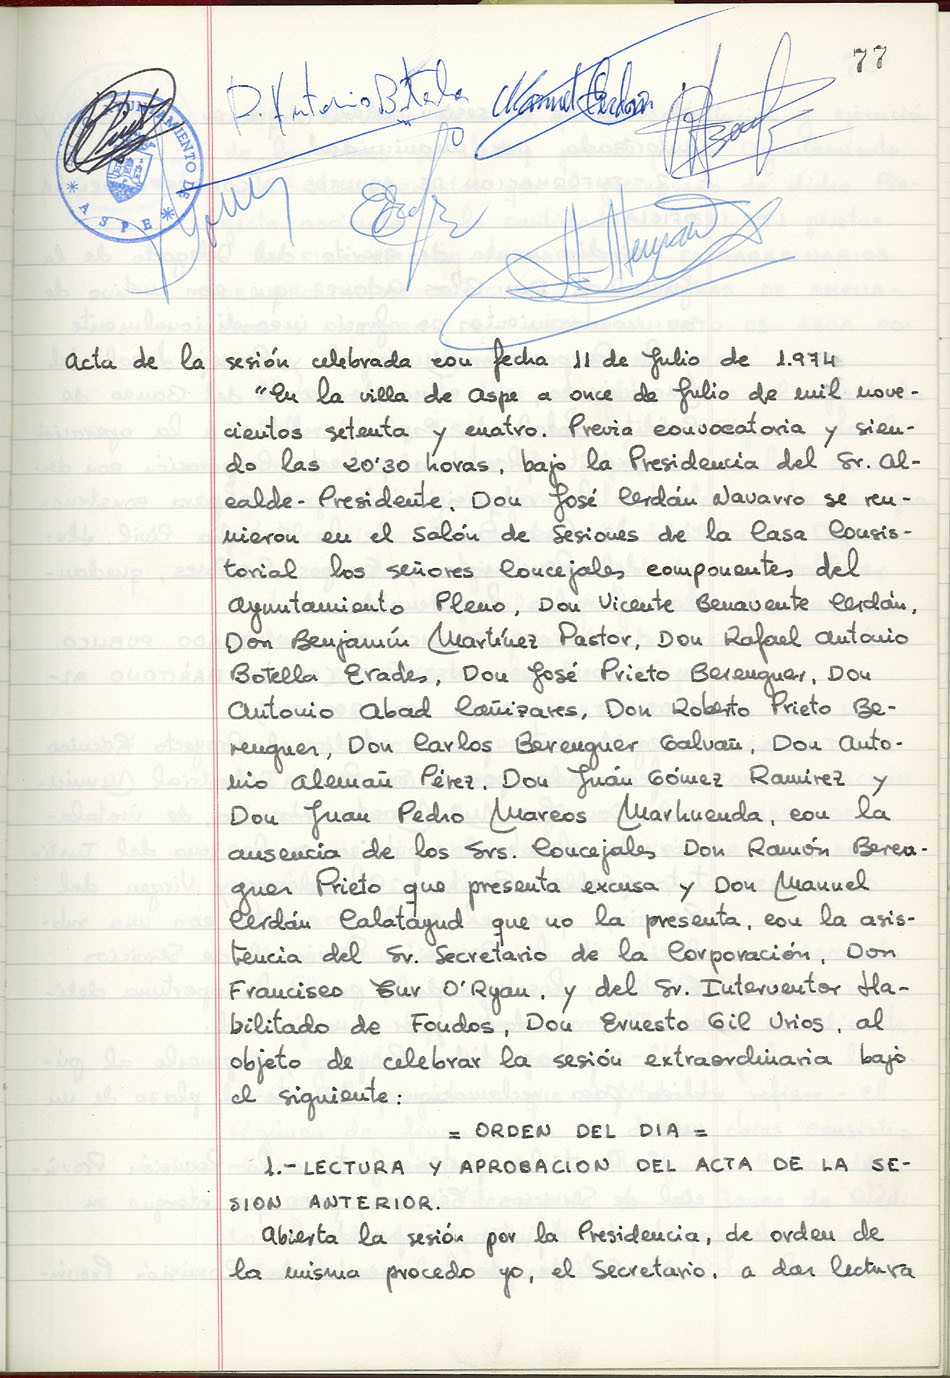 77
AYUNTAMIENTO DE
* ASPE *
R. Antonio Botella
Manuel Cerdán
Acta de la sesión celebrada con fecha 11 de Julio de 1.974
"En la villa de Aspe a once de Julio de mil nove-
cientos setenta y cuatro. Previa convocatoria y sien-
do las 20'30 horas, bajo la Presidencia del Sr. Al-
calde-Presidente, Don José Cerdán Navarro se reu-
nieron en el Salón de Sesiones de la Casa Consis-
torial los señores Concejales componentes del
Ayuntamiento Pleno, Don Vicente Benavente Cerdán,
Don Benjamín Martínez Pastor, Don Rafael Antonio
Botella Erades, Don José Prieto Berenguer, Don
Antonio Abad Cañizares, Don Roberto Prieto Be-
renguer, Don Carlos Berenguer Galvañ, Don Anto-
nio Alemañ Pérez, Don Juán Gómez Ramírez y
Don Juan Pedro Marcos Marhuenda, con la
ausencia de los Srs. Concejales Don Ramón Beren-
guer Prieto que presenta excusa y Don Manuel
Cerdán Calatayud que no la presenta, con la asis-
tencia del Sr. Secretario de la Corporación, Don
Francisco Cur O'Ryan, y del Sr. Interventor Ha-
bilitado de Fondos, Don Ernesto Gil Urios, al
objeto de celebrar la sesión extraordinaria bajo
el siguiente:
= ORDEN DEL DIA =
1.- LECTURA Y APROBACION DEL ACTA DE LA SE-
SION ANTERIOR.
Abierta la sesión por la Presidencia, de orden de
la misma procedo yo, el Secretario, a dar lectura